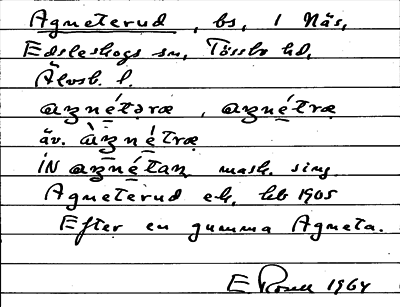 Agneterud, bs, 1 Näs,
Edsleskogs sn, Tössbo hd,
Älvsb. l.
aznétəræ, aznétræ
äv. àznétræ
IN aznétaɳ mask. sing.
Agneterud ek. kb 1905
Efter en gumma Agneta.
E 1964